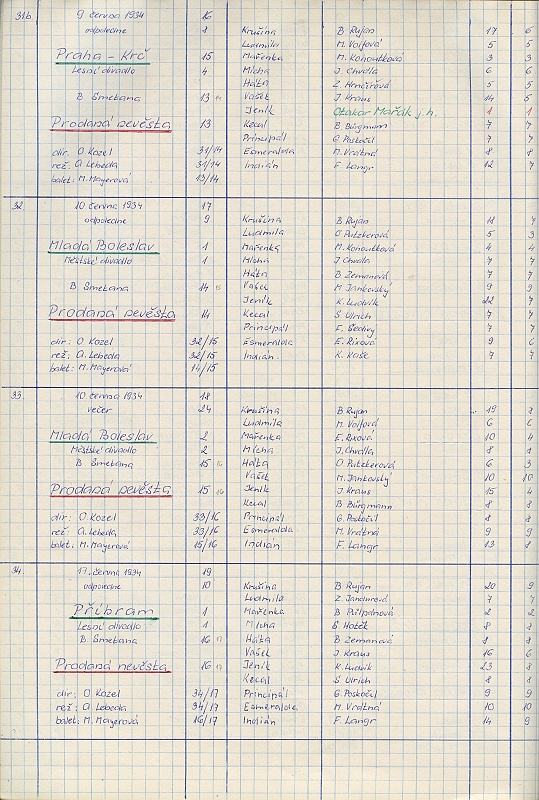 31b 9 června 1934 16 Krušina B Rujan 17 6
odpoledne 8 Ludmila M. Volfová 5 5
Praha - Krč 15 Mařenka M. Kohoutková 3 3
Lesní divadlo 4 Mícha J Chvdla 6 6
Háta Z. Hrnčířová 5 5
B Smetana 13 Vašek J Kraus 14 5
Jeník Otakar Mařák j. h. 1 1
Prodaná nevěsta 13 Kecal B. Bürgmann 7 7
Principál G. Poskočil 7 7
dir. O. Kozel 31/14 Esmeralda M. Vratná 8 8
rež. A. Lebeda 31/14 Indián F. Langr 12 7
balet: M. Mayerová 13/14
32 10 června 1934 17 Krušina B Rujan 18 7
odpoledne 9 Ludmila O Putzkerová 5 3
Mladá Boleslav 1 Mařenka M. Kohoutková 4 4
Městské divadlo 1 Mícha J Chvdla 7 7
Háta B Zemanová 7 7
B Smetana 14 Vašek M. Jankovský 9 9
Jeník K. Ludvík 22 7
Prodaná nevěsta 14 Kecal S Ulrich 7 7
Principál F. Šedivý 7 7
dir: O Kozel 32/15 Esmeralda E. Rixová 9 6
rež: A. Lebeda 32/15 Indián K. Kaše 7 7
balet: M. Mayerová 14/15
33 10 června 1934 18 Krušina B Rujan 19 8
večer 24 Ludmila M. Volfová 6 6
Mladá Boleslav 2 Mařenka E. Rixová 10 4
Městské divadlo 2 Mícha J. Chvdla 8 8
B Smetana 15 Háta O. Putzkerová 6 3
Vašek M. Jankovský 10 10
Prodaná nevěsta 15 16 Jeník J. Kraus 15 4
Kecal B Bürgmann 8 8
dir: O Kozel 33/16 Principál G. Poskočil 8 8
rež: A. Lebeda 33/16 Esmeralda M. Vratná 9 9
balet: M. Mayerová 15/16 Indián F. Langr 13 8
34 17. června 1934 19 Krušina B Rujan 20 9
odpoledne 10 Ludmila Z. Jandurová 7 7
Příbram 1 Mařenka B Půlpánová 2 2
Lesní divadlo 1 Mícha 8 8
B Smetana 16 17 Háta B Zemanová 8 8
Vašek J Kraus 16 6
Prodaná nevěsta 16 17 Jeník K. Ludvík 23 8
Kecal S Ulrich 8 8
dir: O Kozel 34/17 Principál G. Poskočil 9 9
rež: A Lebeda 34/17 Esmeralda M. Vratná 10 10
balet: M. Mayerová 16/17 Indián F. Langr 14 9